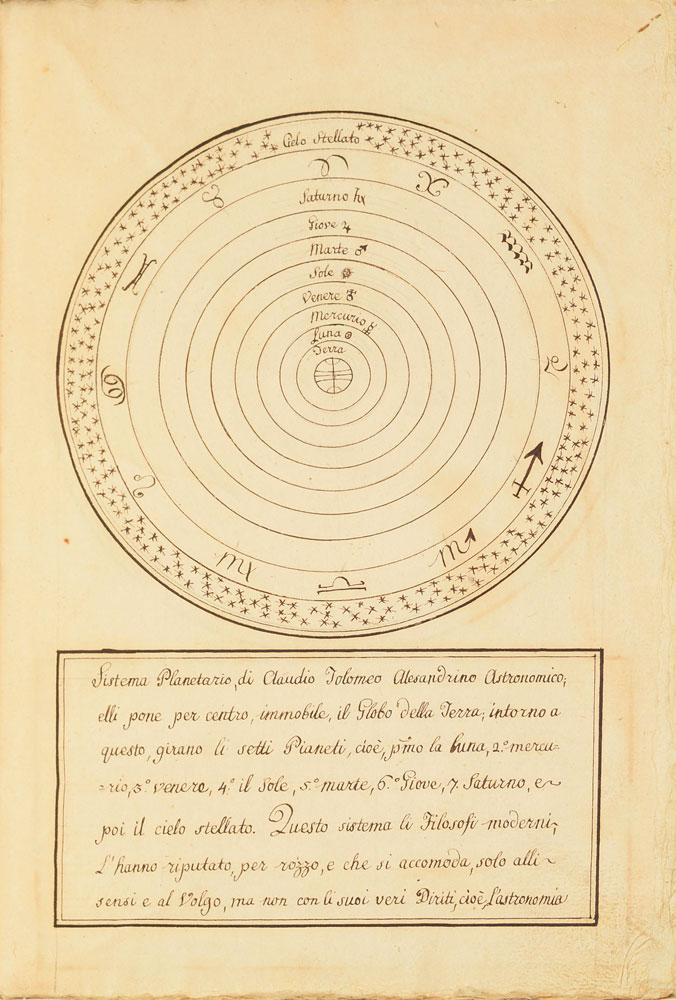 Cielo Stellato
♈
♉ ♓
Saturno ♄
Giove ♃
♒
Marte ♂
Sole ☉
♊
Venere ♀
Mercurio ☿
Luna
Terra
♑
♋
♐
♌
♍ ♏
♎
Sistema Planetario, di Claudio Tolomeo Alesandrino Astronomico;
elli pone per centro, immobile, il Globo della Terra; intorno a
questo, girano li setti Pianeti, cioè, pmo la Luna, 2.º mercu-
-rio, 3.º venere, 4.º il Sole, 5.º marte, 6.º Giove, 7. Saturno, e~
poi il cielo stellato. Questo sistema li Filosofi moderni,
L'hanno riputato, per rozzo, e che si accomoda, solo alli~
sensi e al Volgo, ma non con li suoi veri Diriti, cioè, L'astronomia